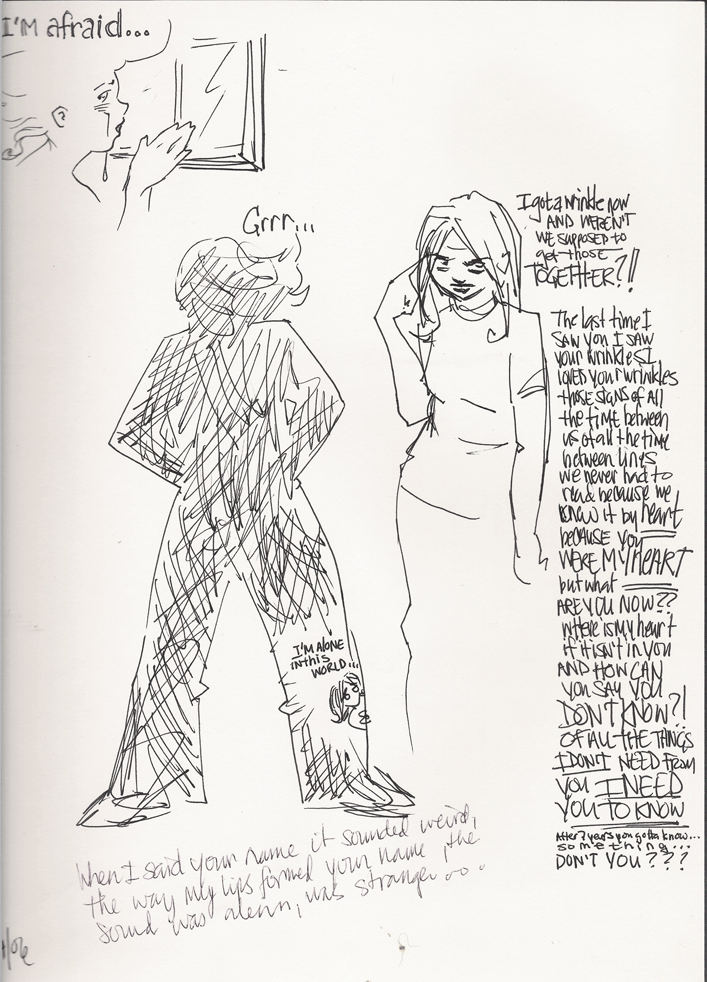 I'M afraid...
?
Grrr...
I got a wrinkle now
AND WEREN'T
WE supposed to
get those
TOGETHER?!!
The last time I
SAW YOU I SAW
your wrinkles I
loved your wrinkles
those signs of All
the time between
us of all the time
between lines
we never had to
read because we
know it by heart
because you
WERE MY HEART
but what
ARE YOU NOW??
where is my heart
if it isn't in you
AND HOW CAN
YOU SAY YOU
DON'T KNOW?!
OF ALL THE THINGS
I DON'T NEED from
YOU I NEED
YOU TO KNOW
After 7 years you gotta know...
something...
DON'T YOU???
I'M ALONE
in this
WORLD...
When I said your name it sounded weird,
the way my lips formed your name, the
sound was alien, was strange...